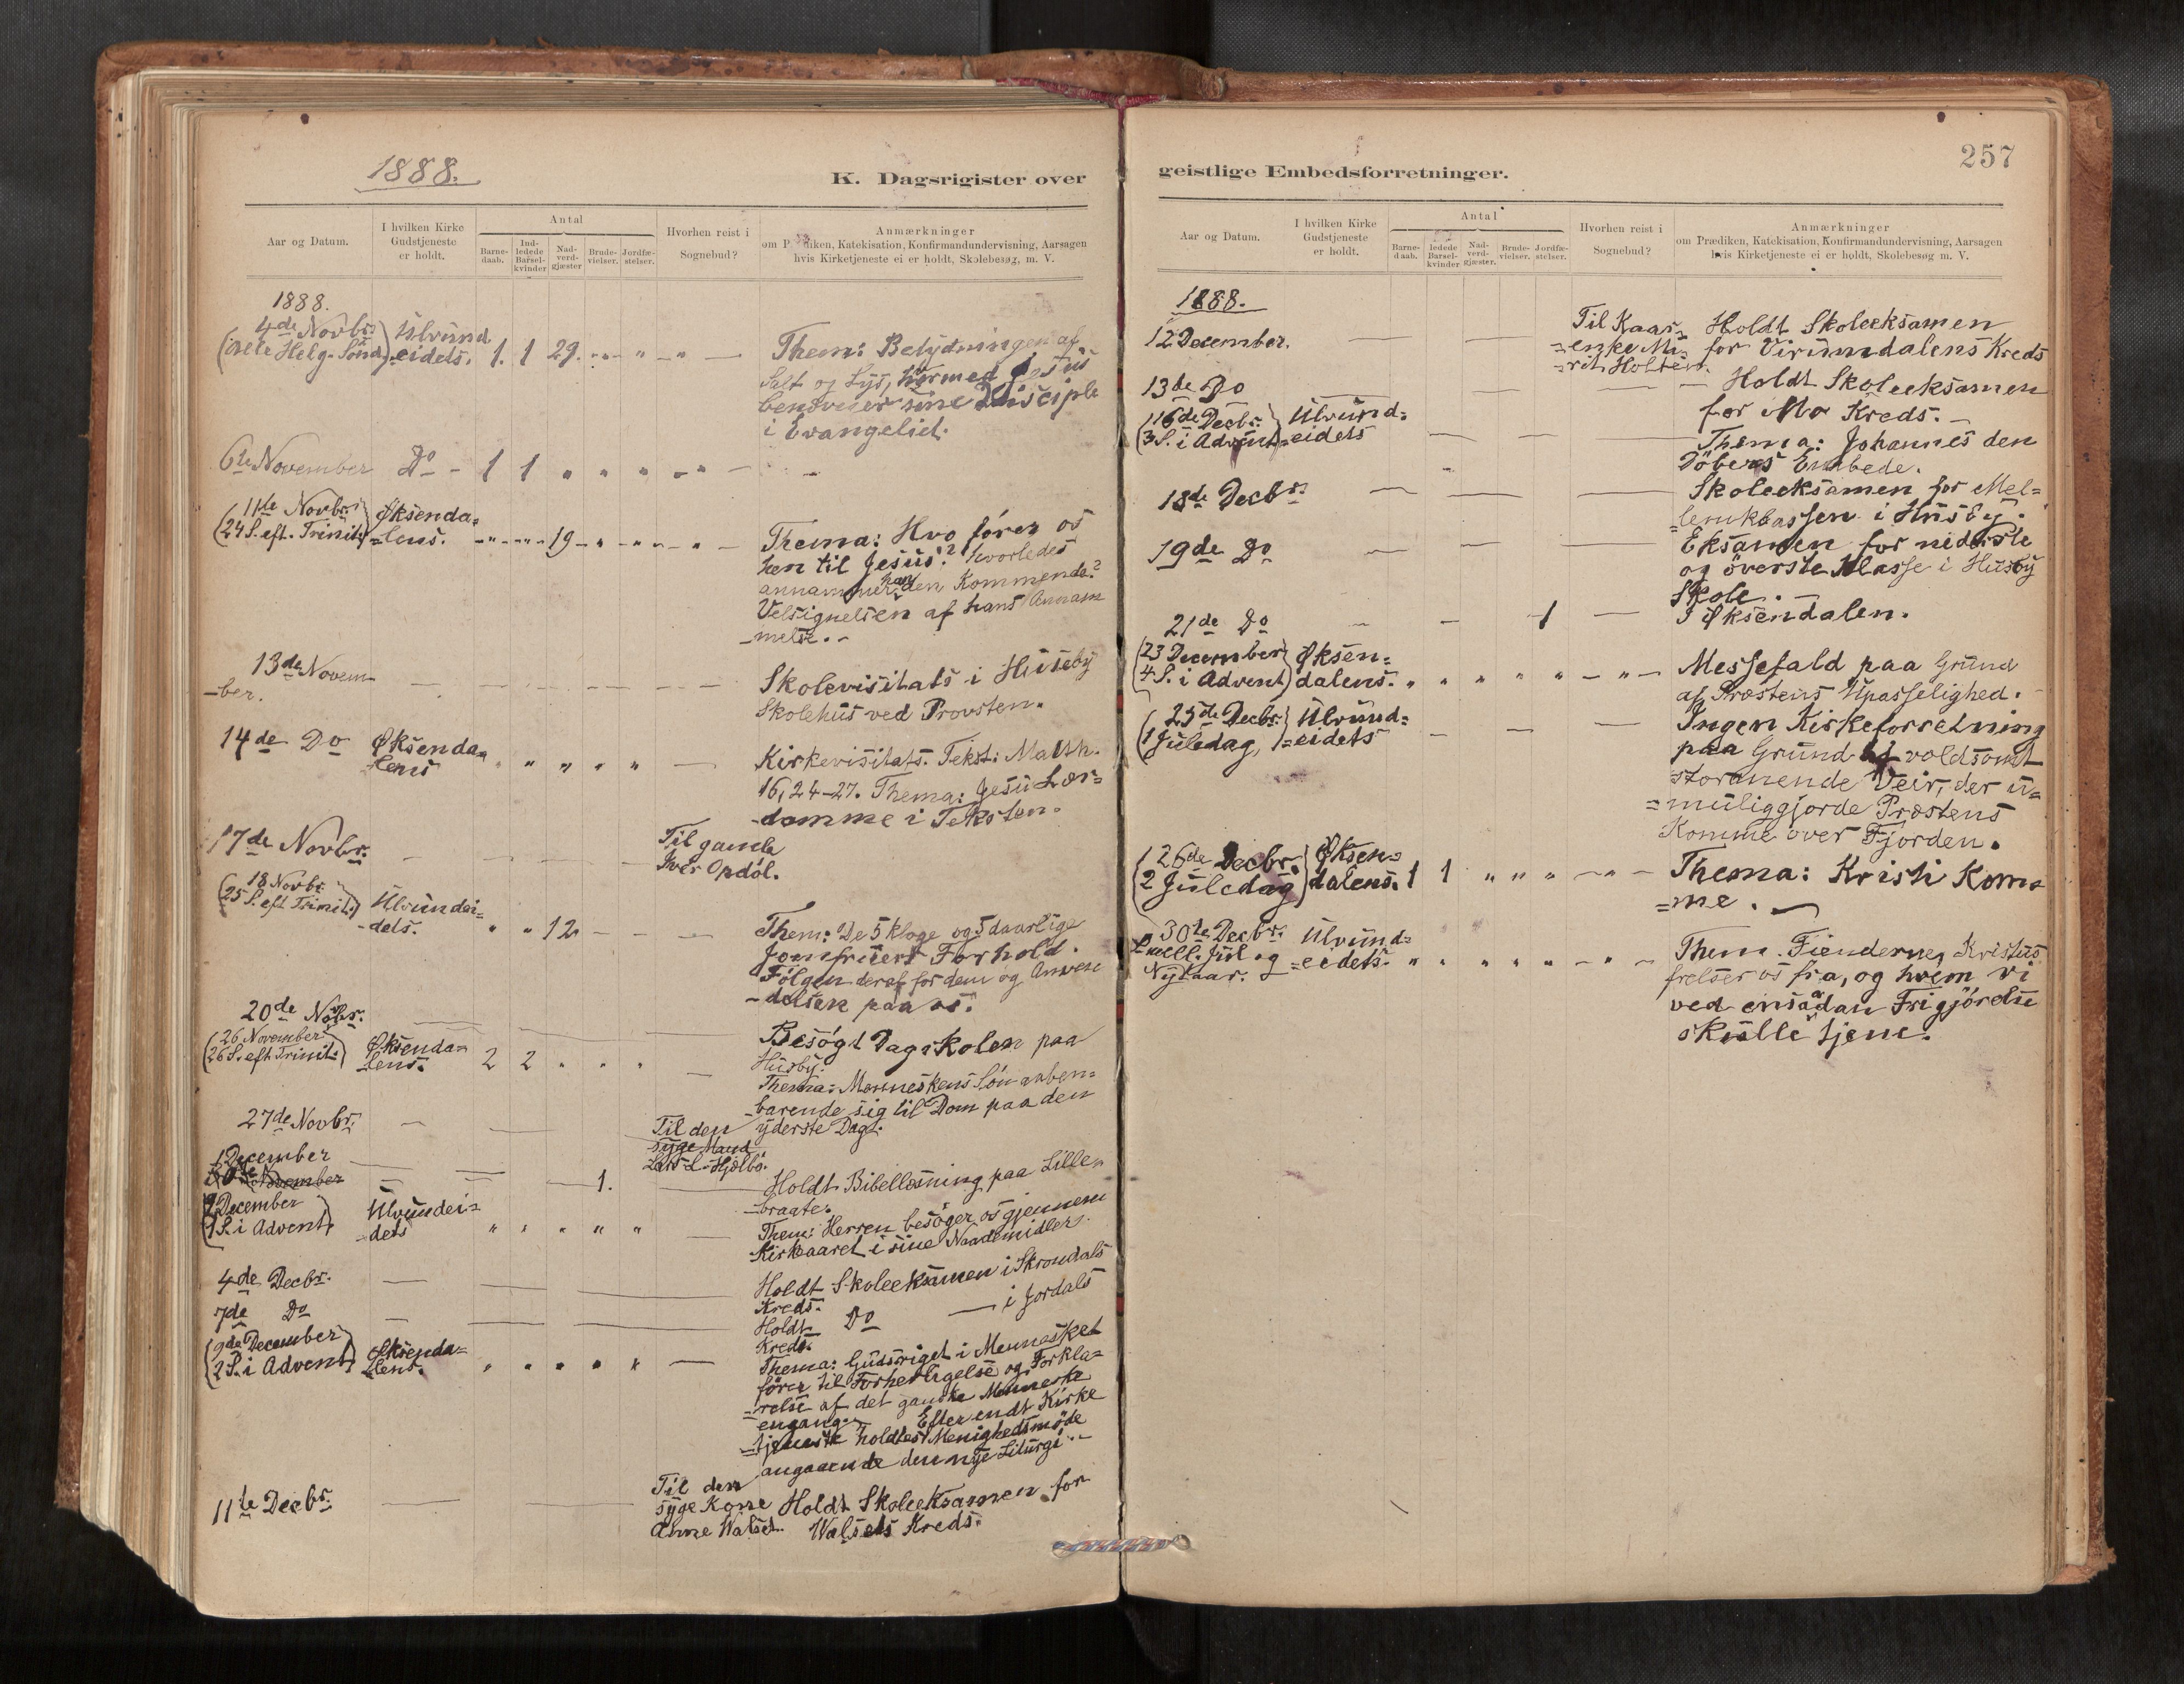 1888.
K. Dagsrigister over
Aar og Datum.
I hvilken Kirke
Gudstjeneste
er holdt.
Antal
Barne-
daab.
Ind-
ledede
Barsel-
kvinder
Nad-
verd-
gjæster
Brude-
vielser.
Jordfæ-
stelser.
Hvorhen reist i
Sognebud?
Anmærkninger
om Prædiken, Katekisation, Konfirmandundervisning, Aarsagen
hvis Kirketjeneste ei er holdt, Skolebesøg, m. V.
1888.
4de Novbr. Ulvund
Helg. Sønd. -eidets. 1. 1 29. Them: Betydningen af
Salt og Lys, hvormed Jesus
benævner sine Disciple
i Evangeliet.
6te November Do - 1 1 " " " - " -
(11te Novbr. Øksenda-
24 S. eft. Trinit.) -lens. 19 Thema: Hvo fører os
hen til Jesus? hvorledes
annammer han den Kommende?
Velsignelsen af hans Annam
-melse. -
13de Novem-
-ber. Skolevisitats i Huseby
Skolehus ved Provsten.
14de Do Øksenda-
-lens " " " " " Kirkevisitats. Tekst: Matth.
16, 24-27. Thema: Jesu Lær-
-domme i Teksten.
17de Novbr. Til gamle
Iver Opdöl.
(18 Novbr.
25 S. eft Trinit.) Ulvundei-
-dets. " " 12 Them: De 5 kloge og 5 daarlige
Jomfruers Forhold.
Følgen deraf for dem og Anven
-delsen paa os.
20de Novbr. Besögt Dagskolen paa
Husby.
(26 November
26 S. eft Trinit.) Øksenda-
-lens. 2 2 " " " Thema: Menneskens Søn aaben-
-barende sig til Dom paa den
yderste Dag.
27de Novbr. Til den
syge Mand
Lars L. Hjölbö.
1 December
November 1. Holdt Bibellæsning paa Lille-
-braate.
(2 December
1 S. i Advent) Ulvundei-
-dets " " " " " Them: Herren besöger os gjennem
Kirkeaaret i sine Naademidler.
4de Decbr. Holdt Skoleeksamen i Skrondals
Kreds.
7de Do Holdt Do i Jordals
Kreds.
(9de December
2 S. i Advent) Øksenda-
-lens. " " " " " Thema: Gudsriget i Mennesket
fører til Forherligelse og Forkla-
-relse af det ganske Menneske
engang. Efter endt Kirke
-tjeneste holdtes Menighedsmöde
angaaende den nye Liturgi.
11te Decbr. Til den
syge Kone
Anne Walset. Holdt Skoleeksamen for
Walsets Kreds.
geistlige Embedsforretninger.
257
Aar og Datum.
I hvilken Kirke
Gudstjeneste
er holdt.
Antal
Barne-
daab.
ledede
Barsel-
kvinder
Nad-
verd-
gjæster.
Brude-
vielser.
Jordfæ-
stelser.
Hvorhen reist i
Sognebud?
Anmærkninger
om Prædiken, Katekisation, Konfirmandundervisning, Aarsagen
hvis Kirketjeneste ei er holdt, Skolebesøg m. V.
1888.
12 December. Til Kaar-
-enke Ma-
-rit Holten. Holdt Skoleeksamen
for Virumdalens Kreds
13de Do Holdt Skoleeksamen
for Mo Kreds. -
(16de Decbr.
3 S. i Advent) Ulvund-
-eidets Thema: Johannes den
Döbers Embede.
18de Decbr. Skoleeksamen for Mel-
i Husby.
19de Do Eksamen for nederste
og överste Klasse i Husby
Skole.
21de Do 1 I Øksendalen.
(23 December
4 S. i Advent) Øksen-
dalens. " " " " " - " - Messefald paa Grund
af Præstens Upasselighed.
(25de Decbr.
1 Juledag,) Ulvund-
-eidets Ingen Kirkeforretning
paa Grund af voldsomt
stormende Veir, der u-
-muliggjorde Præstens
Komme over Fjorden.
(26de Decbr.
2 Juledag) Øksen-
dalens. 1 1 " " " - " - Thema: Kristi Kom-
-me.
30te Decbr.
S. mell. Jul og
Nytaar. Ulvund-
-eidets. " " " " " - " - Them. Fienderne, Kristus
frelser os fra, og hvem vi
ved en saadan Frigjörelse
skulle tjene.